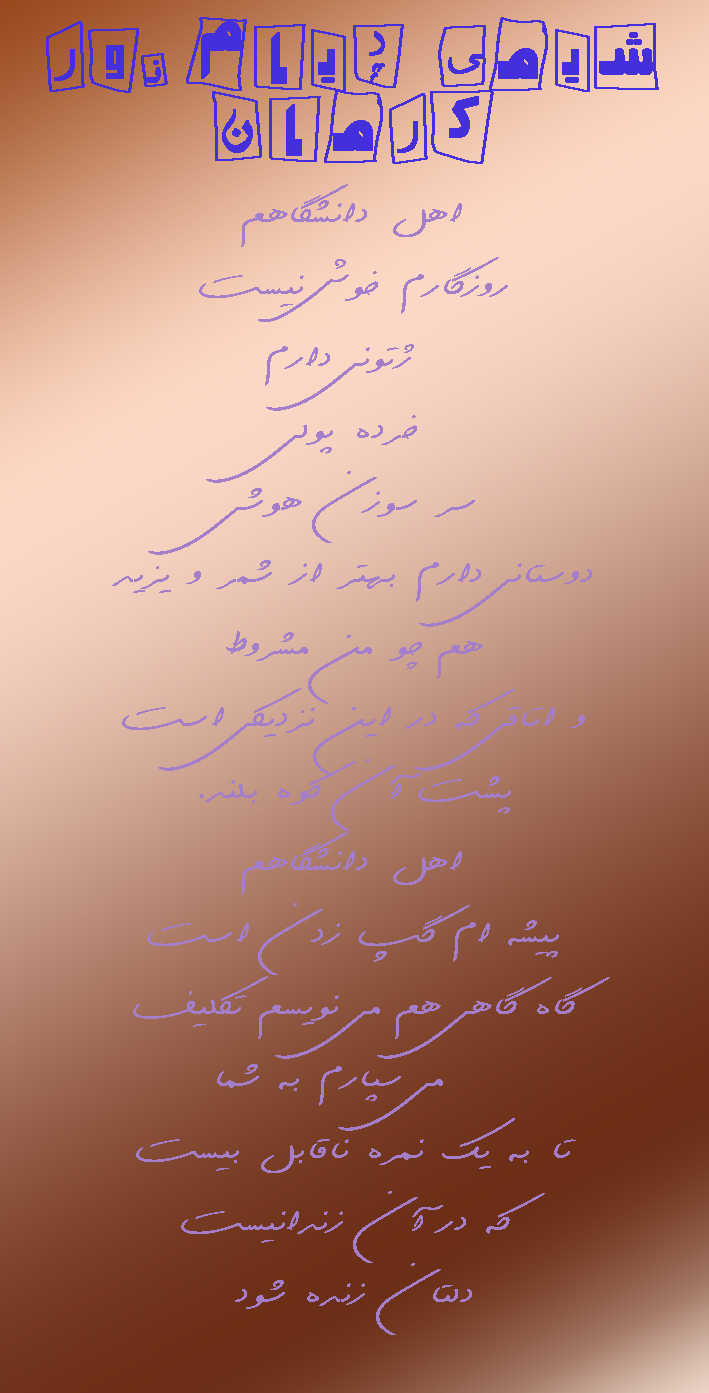 شیمی پیام نور
کرمان
اهل دانشگاهم
روزگارم خوش نیست
ژتونی دارم
خرده پولی
سر سوزن هوشی
دوستانی دارم بهتر از شمر و یزید
هم چو من مشروط
و اتاقی که در این نزدیکی است
پشت آن کوه بلند.
اهل دانشگاهم
پیشه ام گپ زدن است
گاه گاهی هم می نویسم تکلیف
می سپارم به شما
تا به یک نمره ناقابل بیست
که در آن زندانیست
دلتان زنده شود